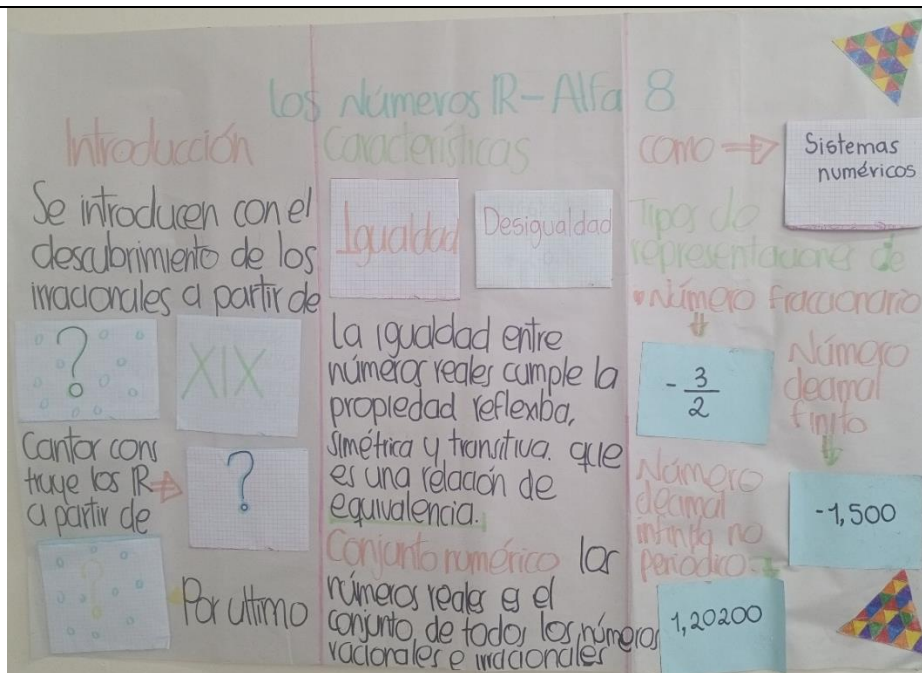 Los Números IR-Alfa 8
Introducción
Se introducen con el
descubrimiento de los
irracionales a partir de
?
XIX
Cantor cons
truye los IR
a partir de
?
?
Por ultimo
Características
Igualdad
Desigualdad
La igualdad entre
números reales cumple la
propiedad reflexiba,
simétrica y transitiva. que
es una relación de
equivalencia.
Conjunto numérico los
números reales es el
conjunto de todos los números
racionales e irracionales
como
Sistemas
numéricos
Tipos de
representaciones de
Número fraccionario
- 3/2
Número
decimal
finito
-1,500
Número
decimal
infinito no
periodico
1,20200